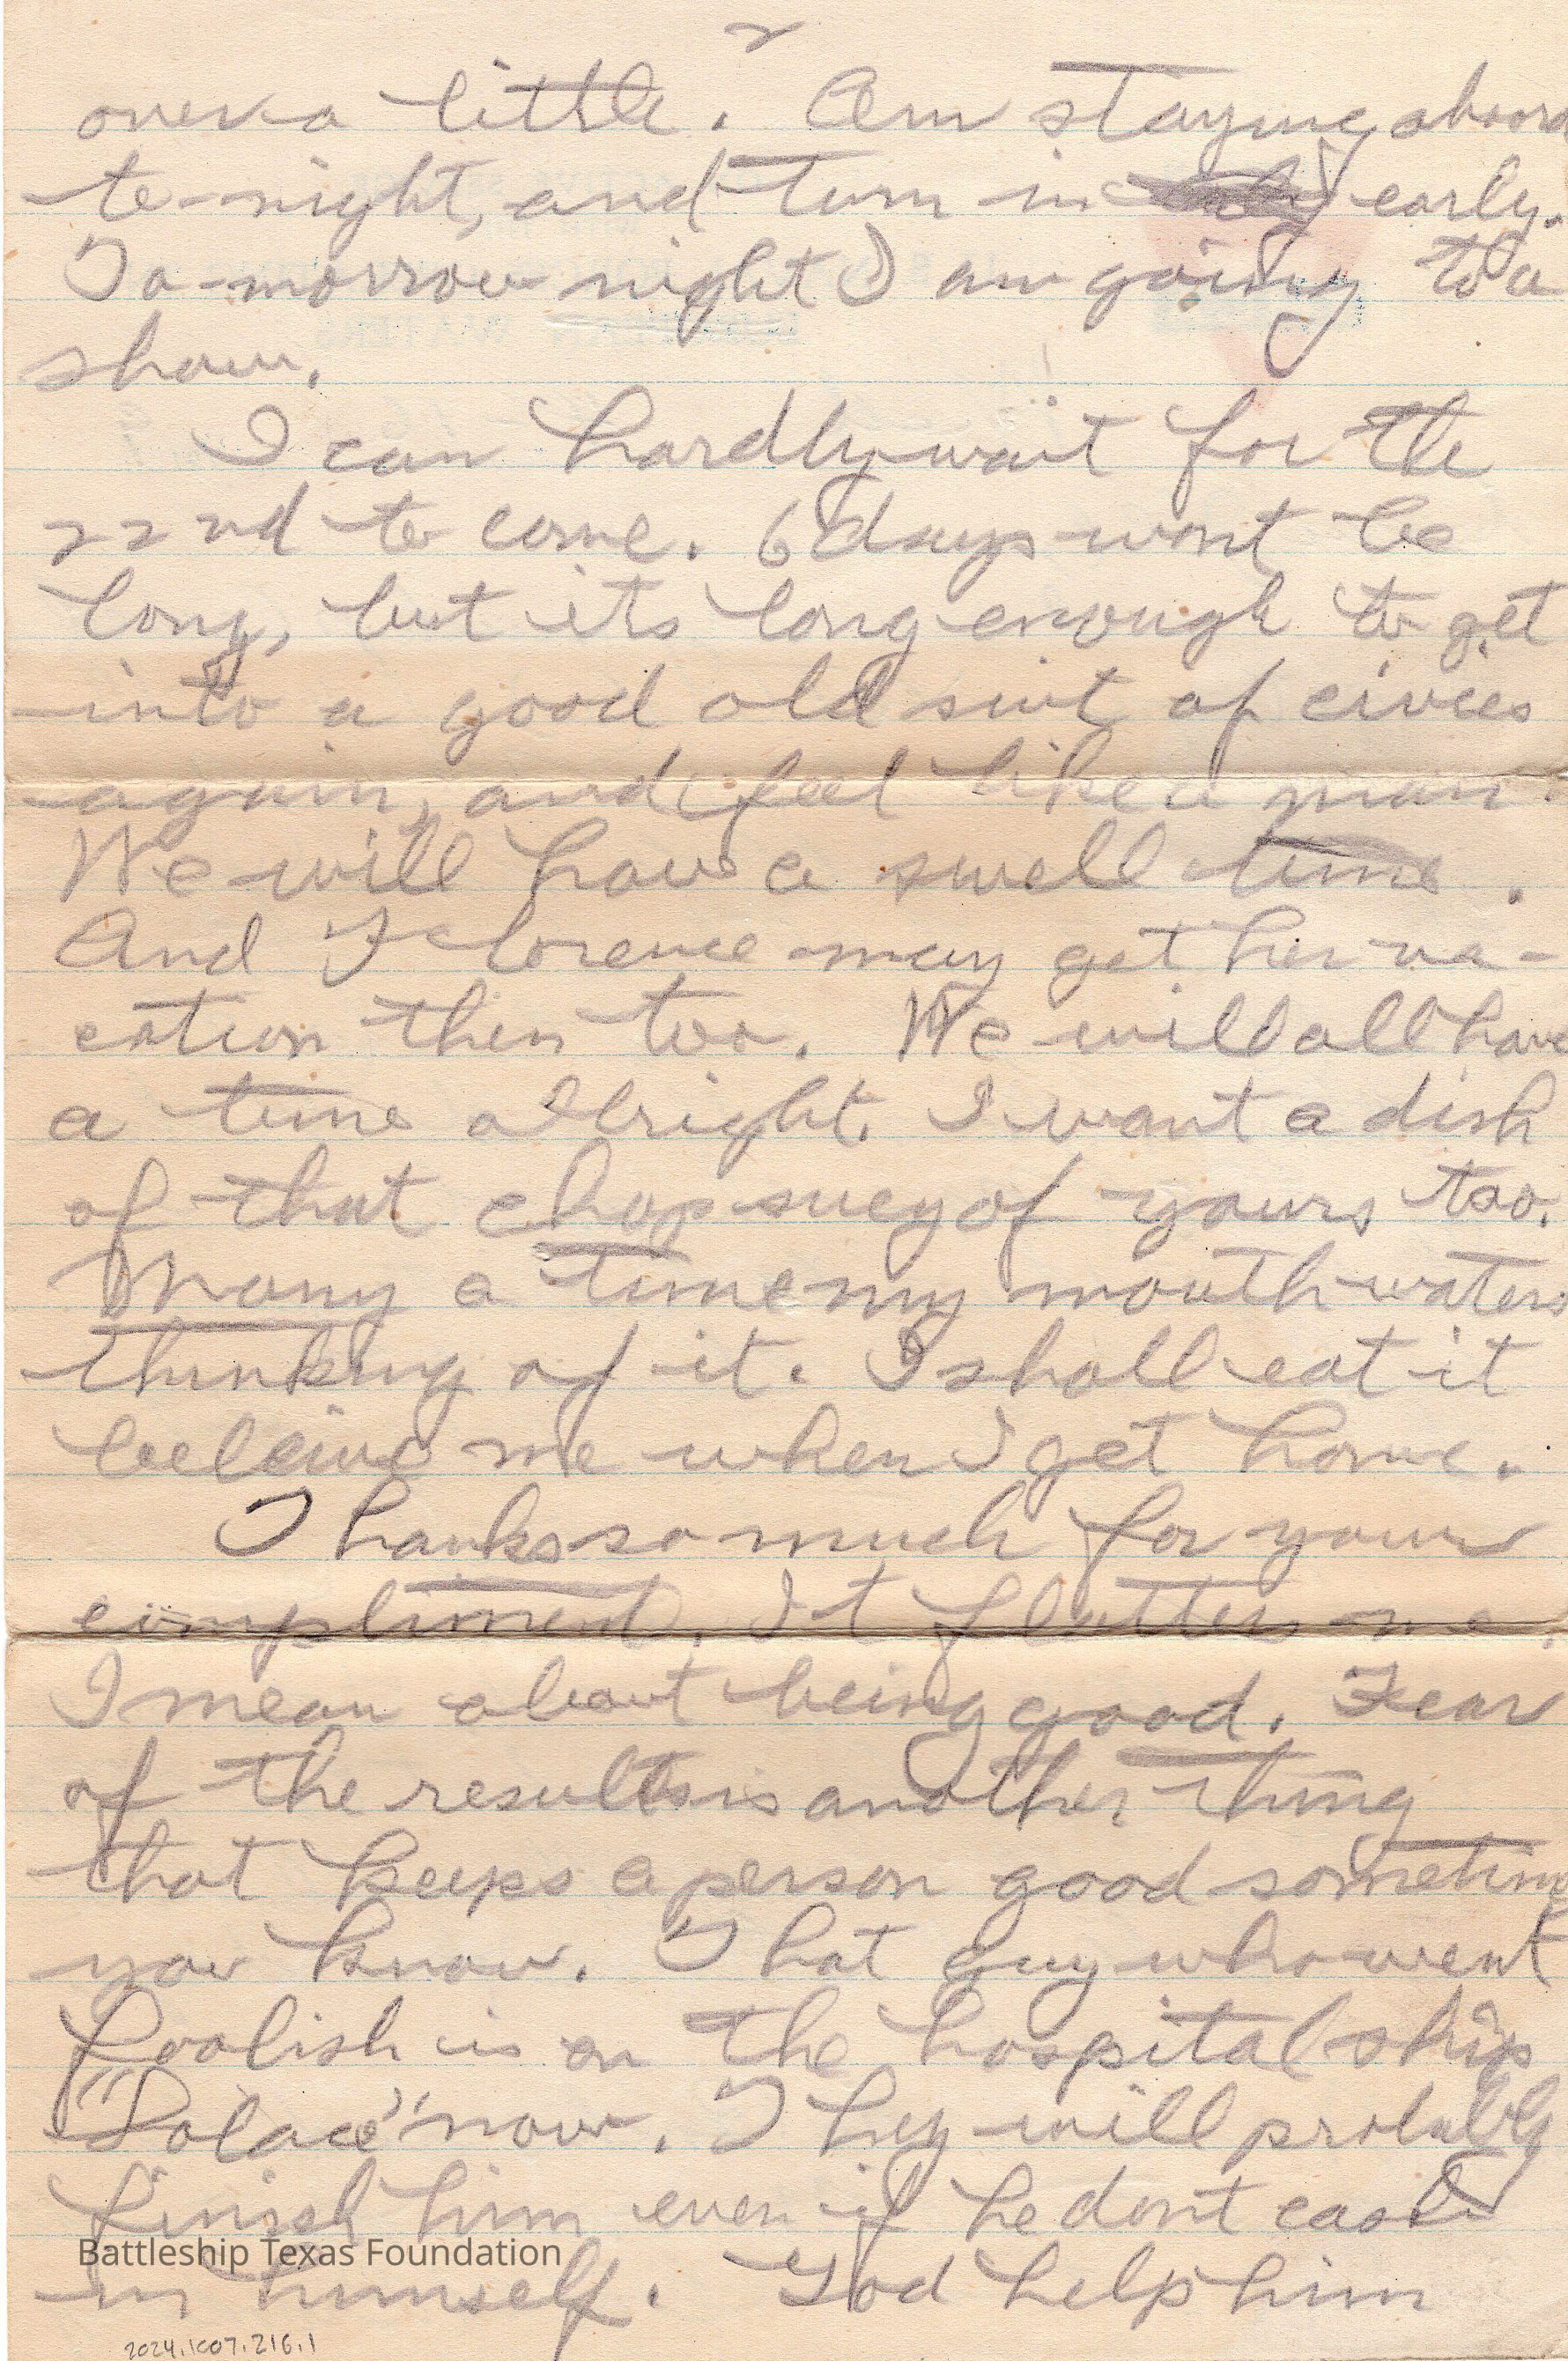 2
over a little. Am staying aboard
to-night, and turn in early.
To-morrow night I am going to a
show.
I can hardly wait for the
22nd to come. 6 days wont be
long, but its long enough to get
into a good old suit of civies
again, and feel like a man.
We will have a swell time.
And Florence may get her va-
cation then too. We will all have
a time allright. I want a dish
of that chop suey of yours too.
Many a time my mouth waters
thinking of it. I shall eat it
beleive me when I get home.
Thanks so much for your
compliment. It flatters me.
I mean about being good. Fear
of the results is another thing
that keeps a person good sometime
you know. That guy who went
foolish is on the hospital ship
"Solace" now. They will probably
finish him even if he dont cash
in himself. God help him
Battleship Texas Foundation
2024.1007.216.1